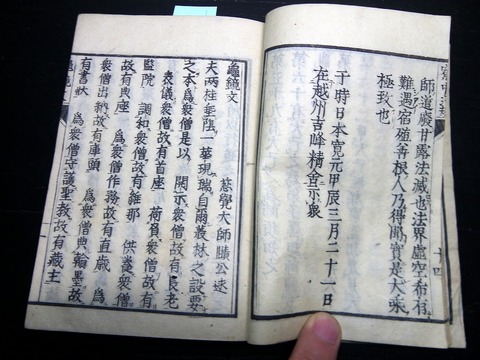 師道廢甘露法滅也法界虛空希有
難遇宿殖善根人乃得聞實是大乘
極致也
于時日本寬元甲辰三月二十一日
在越州吉峰精舍示衆
龜鏡文
慈覺大師賾公述
夫兩桂垂蔭一華現瑞自爾叢林之設要
之本爲衆僧是以開示衆僧故有長老
表儀衆僧故有首座 荷負衆僧故有
監院 調和衆僧故有維那 供養衆僧
故有典座 爲衆僧作務故有直歳 爲
衆僧出納故有庫頭 爲衆僧典翰墨故
有書狀 爲衆僧守護聖教故有藏主